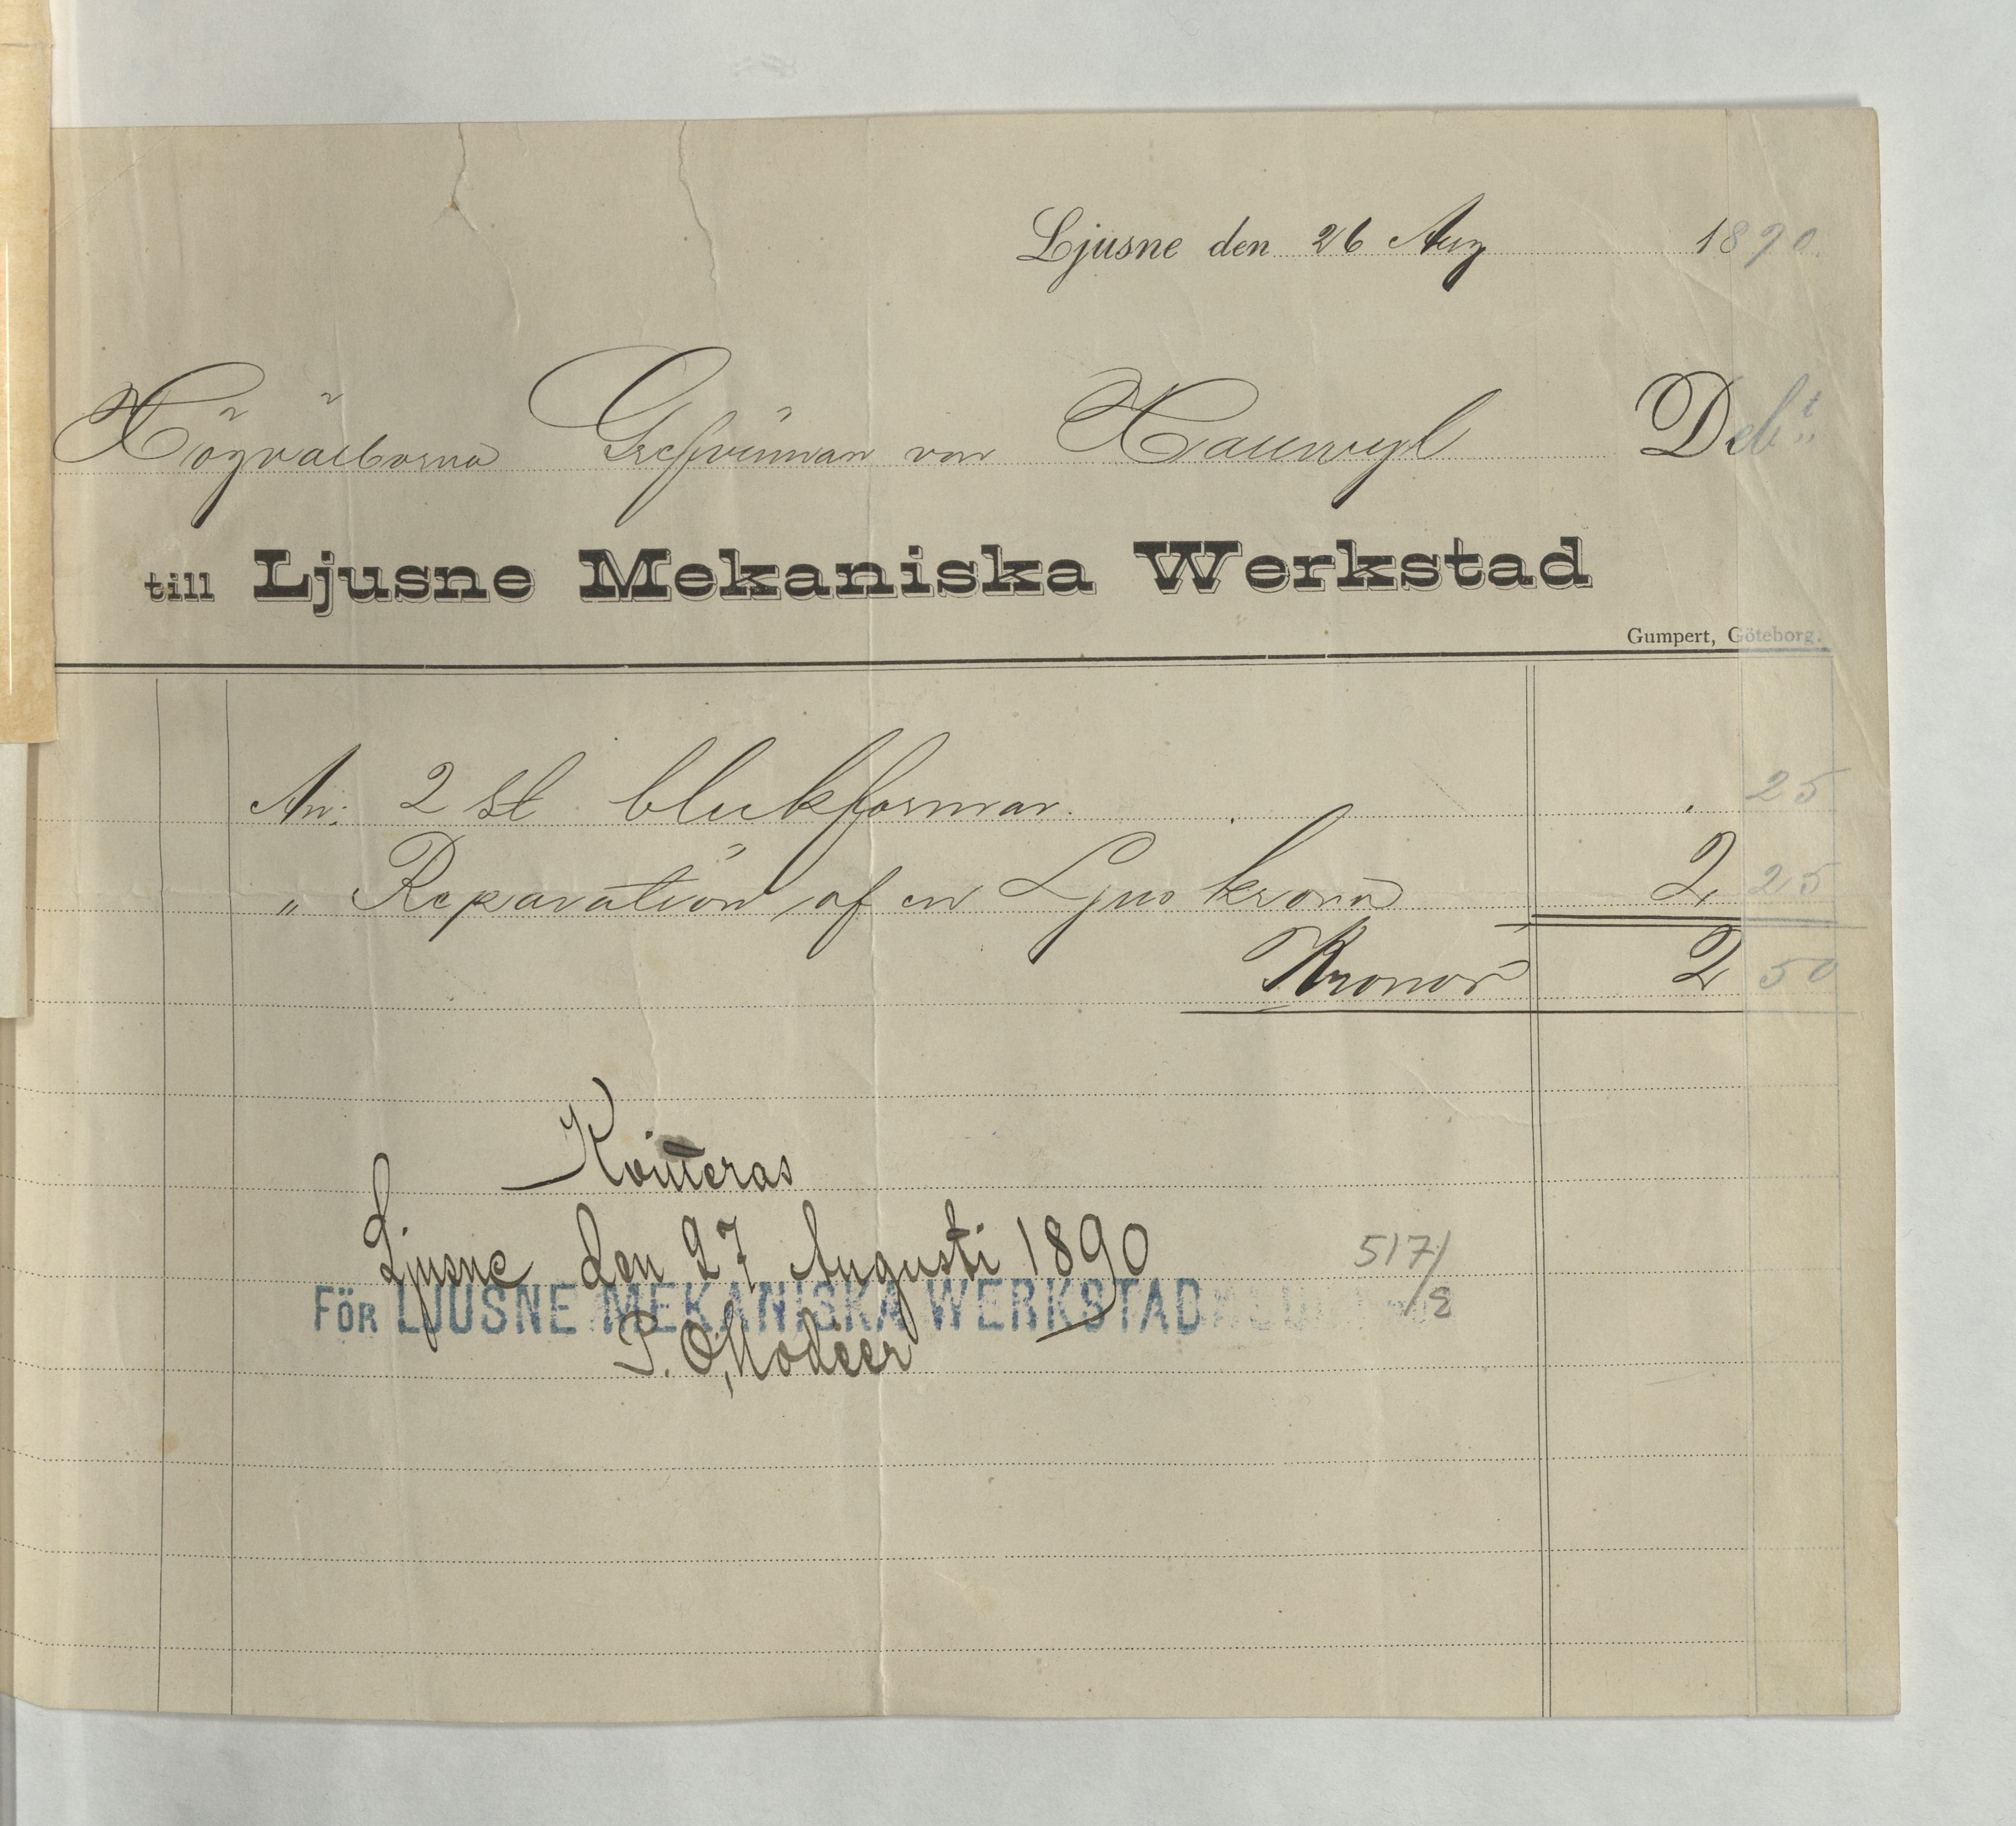 Ljusne den 26 Aug 1890.
Högvälborna Grefvinnan von Hallwyl Debt
till Ljusne Mekaniska Werkstad
Gumpert, Göteborg.
An: 2 st bleckformar. . 25
„ Reparation af en Ljuskrona 2, 25
Kronor 2 50
Kvitteras
Ljusne den 27 Augusti 1890
FÖR LJUSNE MEKANISKA WERKSTAD
P. O. Modéer
517/
/8